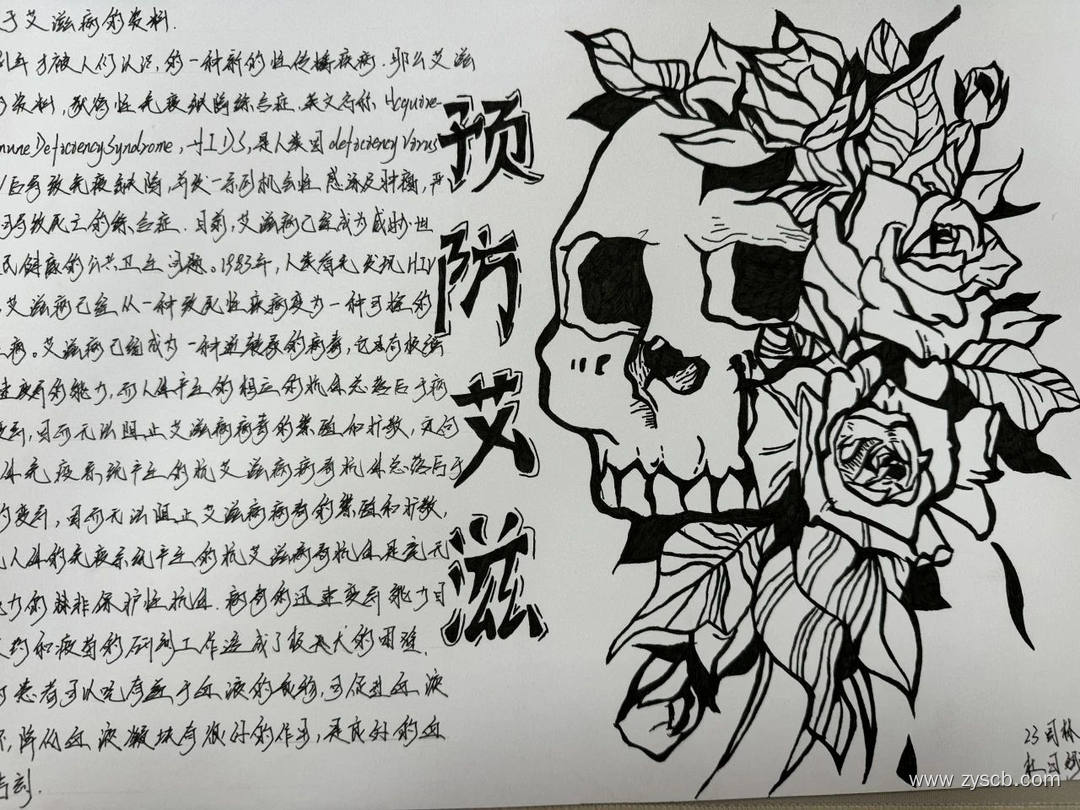 于艾滋病的资料.
年才被人们认识,的一种新的性传播疾病.那么艾滋
资料,获得性免疫缺陷综合症,英文名称 Acquine-
mune Deficiency Syndrome,AIDS,是人类因 deficiency Virus
后导致免疫缺陷,并发一系列机会性感染及肿瘤,严
可导致死亡的综合症.目前,艾滋病已经成为威胁世
民健康的公共卫生问题。1983年,人类首先发现HIV
艾滋病已经从一种致死性疾病变为一种可控的
病。艾滋病已经成为一种逆转录的病毒,它具有极强
速变异的能力,而人体产生的相应的抗体总落后于病
变异,因而无法阻止艾滋病病毒的繁殖和扩散,更何
体免疫系统产生的抗艾滋病病毒抗体总落后于
的变异,因而无法阻止艾滋病病毒的繁殖和扩散,
人体的免疫系统产生的抗艾滋病毒抗体是毫无
力的 非保护性抗体.病毒的迅速变异能力目
药和疫苗的研制工作造成了极大的困难.
患者可以吃有益于血液的食物,可促进血液
,降低血液凝块有很好的作用,是良好的血
剂.
预
防
艾
滋
23司
www.zyscb.com